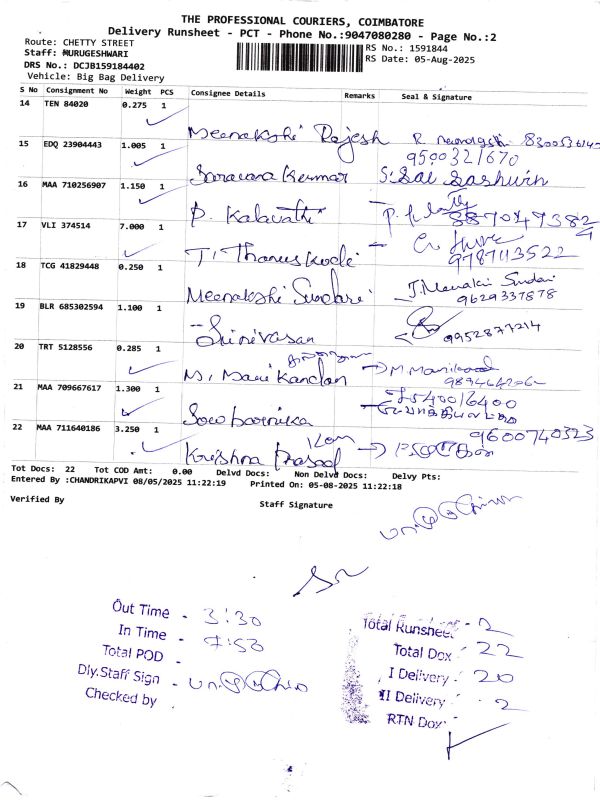 THE PROFESSIONAL COURIERS, COIMBATORE
Delivery Runsheet - PCT - Phone No.:9047080280 - Page No.:2
Route: CHETTY STREET
Staff: MURUGESHWARI
RS No.: 1591844
DRS No.: DCJB159184402
RS Date: 05-Aug-2025
Vehicle: Big Bag Delivery
S No Consignment No Weight PCS Consignee Details Remarks Seal & Signature
14 TEN 84020 0.275 1
Meenakshi Rajesh
15 EDQ 23904443 1.005 1
9500321670
Saravana Kumar S. Sai Sashwin
16 MAA 710256907 1.150 1
P. Kalavathi
17 VLI 374514 7.000 1
T. Thanuskodi 9787113522
18 TCG 41829448 0.250 1
Meenakshi Sundari
9629337878
19 BLR 685302594 1.100 1
Srinivasan 9952877214
20 TRT 5128556 0.285 1
M. Manikandan
21 MAA 709667617 1.300 1
Sowbarnika
22 MAA 711640186 3.250 1
9600740323
Krishna Prasad
Tot Docs: 22 Tot COD Amt: 0.00 Delvd Docs: Non Delvd Docs: Delvy Pts:
Entered By :CHANDRIKAPVI 08/05/2025 11:22:19 Printed On: 05-08-2025 11:22:18
Verified By Staff Signature
Out Time - 3:30
In Time - 7:53
Total POD -
Dly.Staff Sign -
Checked by
Total Runsheet - 2
Total Dox - 22
I Delivery - 20
II Delivery - 2
RTN Dox -